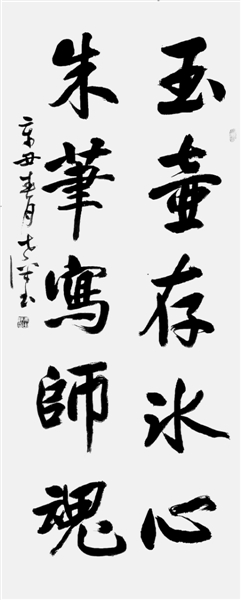 玉壺存冰心
朱筆寫師魂
辛丑春月